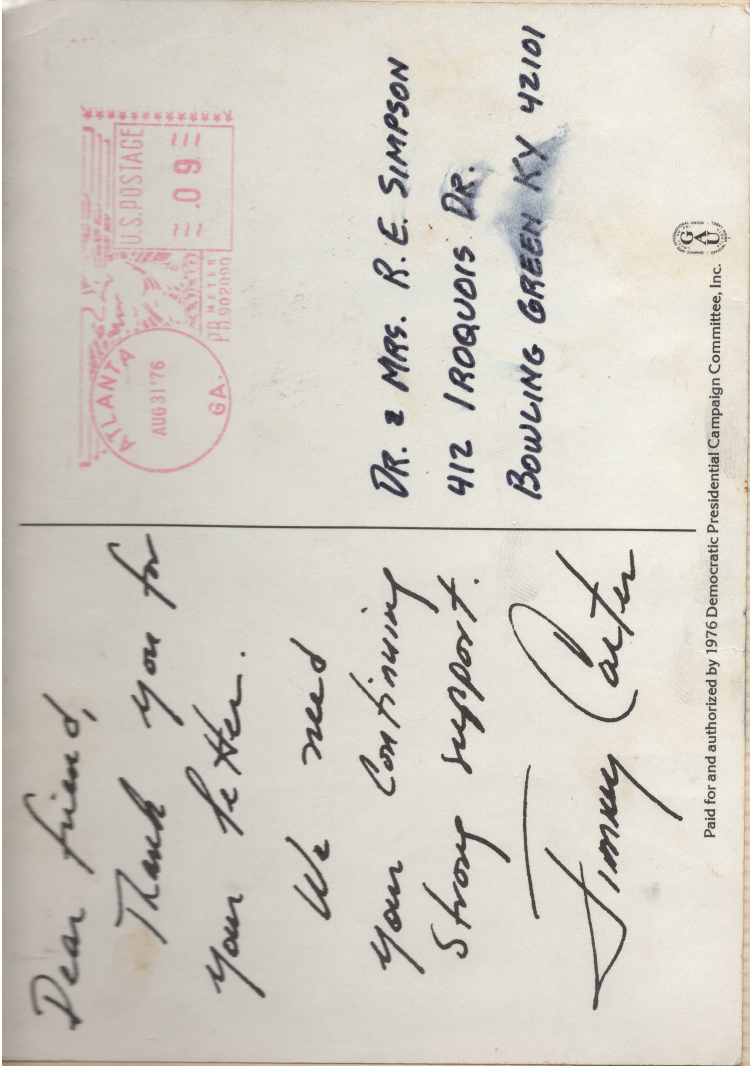 Dear friend,
Thank you for
your letter.
We need
your continuing
strong support.
Jimmy Carter
U.S. POSTAGE
.09
METER
PB902090
ATLANTA
AUG31'76
GA.
DR. & MRS. R. E. SIMPSON
412 IROQUOIS DR.
BOWLING GREEN KY 42101
GAU
Paid for and authorized by 1976 Democratic Presidential Campaign Committee, Inc.